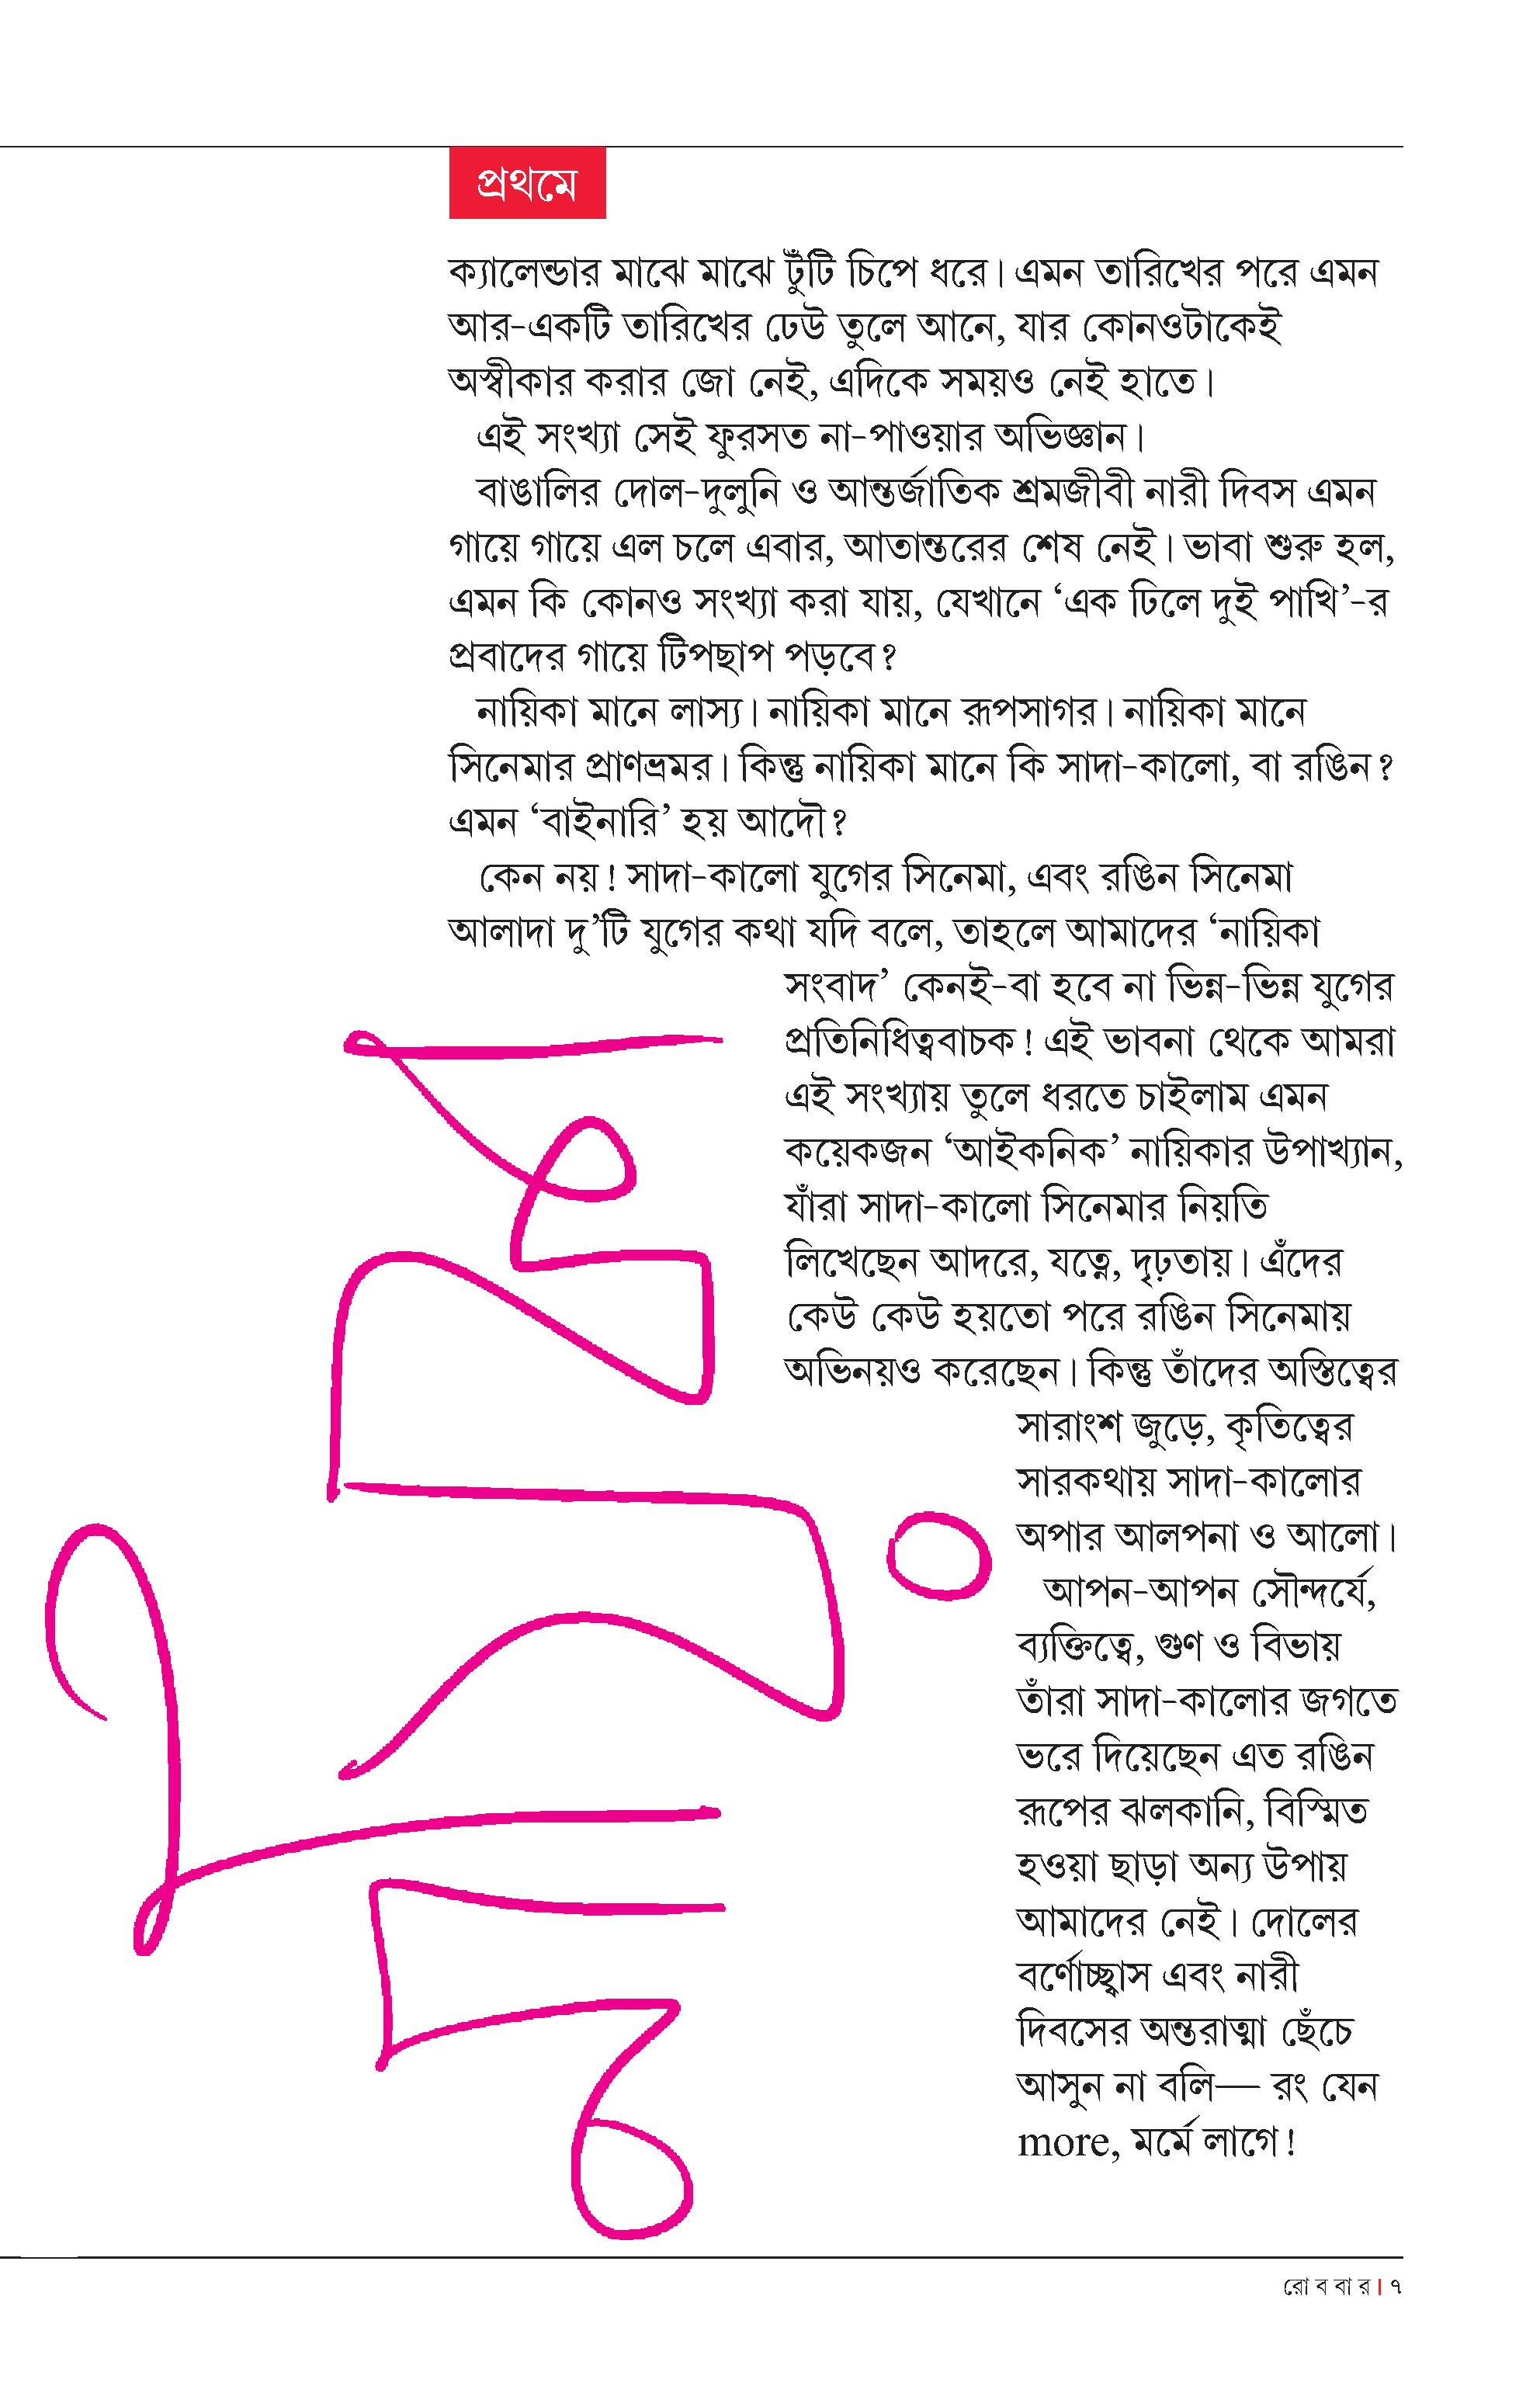 প্রথমে
ক্যালেন্ডার মাঝে মাঝে টুঁটি চিপে ধরে। এমন তারিখের পরে এমন
আর-একটি তারিখের ঢেউ তুলে আনে, যার কোনওটাকেই
অস্বীকার করার জো নেই, এদিকে সময়ও নেই হাতে।
এই সংখ্যা সেই ফুরসত না-পাওয়ার অভিজ্ঞান।
বাঙালির দোল-দুলুনি ও আন্তর্জাতিক শ্রমজীবী নারী দিবস এমন
গায়ে গায়ে এল চলে এবার, আতান্তরের শেষ নেই। ভাবা শুরু হল,
এমন কি কোনও সংখ্যা করা যায়, যেখানে ‘এক ঢিলে দুই পাখি’-র
প্রবাদের গায়ে টিপছাপ পড়বে?
নায়িকা মানে লাস্য। নায়িকা মানে রূপসাগর। নায়িকা মানে
সিনেমার প্রাণভ্রমর। কিন্তু নায়িকা মানে কি সাদা-কালো, বা রঙিন?
এমন ‘বাইনারি’ হয় আদৌ?
কেন নয়! সাদা-কালো যুগের সিনেমা, এবং রঙিন সিনেমা
আলাদা দু’টি যুগের কথা যদি বলে, তাহলে আমাদের ‘নায়িকা
সংবাদ’ কেনই-বা হবে না ভিন্ন-ভিন্ন যুগের
প্রতিনিধিত্ববাচক! এই ভাবনা থেকে আমরা
এই সংখ্যায় তুলে ধরতে চাইলাম এমন
কয়েকজন ‘আইকনিক’ নায়িকার উপাখ্যান,
যাঁরা সাদা-কালো সিনেমার নিয়তি
লিখেছেন আদরে, যত্নে, দৃঢ়তায়। এঁদের
কেউ কেউ হয়তো পরে রঙিন সিনেমায়
অভিনয়ও করেছেন। কিন্তু তাঁদের অস্তিত্বের
সারাংশ জুড়ে, কৃতিত্বের
সারকথায় সাদা-কালোর
অপার আলপনা ও আলো।
আপন-আপন সৌন্দর্যে,
ব্যক্তিত্বে, গুণ ও বিভায়
তাঁরা সাদা-কালোর জগতে
ভরে দিয়েছেন এত রঙিন
রূপের ঝলকানি, বিস্মিত
হওয়া ছাড়া অন্য উপায়
আমাদের নেই। দোলের
বর্ণোচ্ছ্বাস এবং নারী
দিবসের অন্তরাত্মা ছেঁচে
আসুন না বলি— রং যেন
more, মর্মে লাগে!
রোববার। ৭